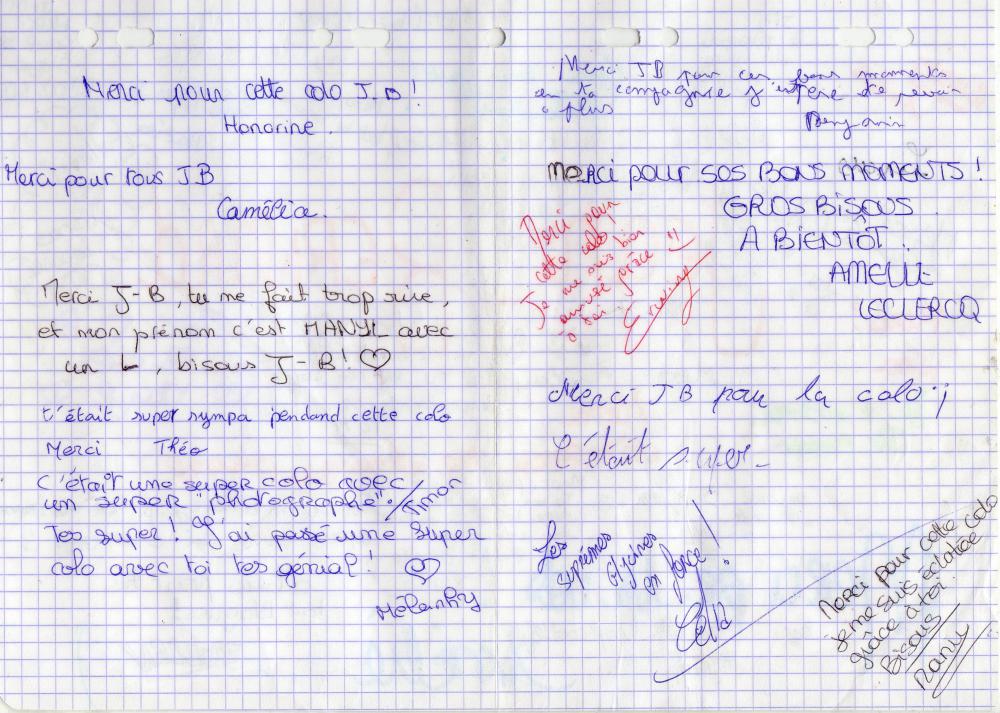 Merci pour cette colo J.B!
Honorine.
Merci pour tous JB
Camélia.
Merci J-B, tu me fait trop rire,
et mon prénom c'est MANYL avec
un L, bisous J-B! ♡
t'était super sympa pendand cette colo
Merci Théo
C'était une super colo avec
un super "photographe".
Tes super! J'ai passé une super
colo avec toi tes génial! ♡
Mélanhy
Merci JB pour ces bons moments
en ta compagnie j'espère te revoir
a plus
Benjamin
MERCI POUR SES BONS MOMENTS!
GROS BISOUS.
A BIENTÔT.
AMELIE
LECLERCQ
Merci pour
cette colo
Je me suis bien
amusé grâce
à toi
Merci JB pour la colo
C'était super
Les
suprêmes
en force!
Merci pour cette colo
je me suis éclatée
grâce à toi.
Bisous